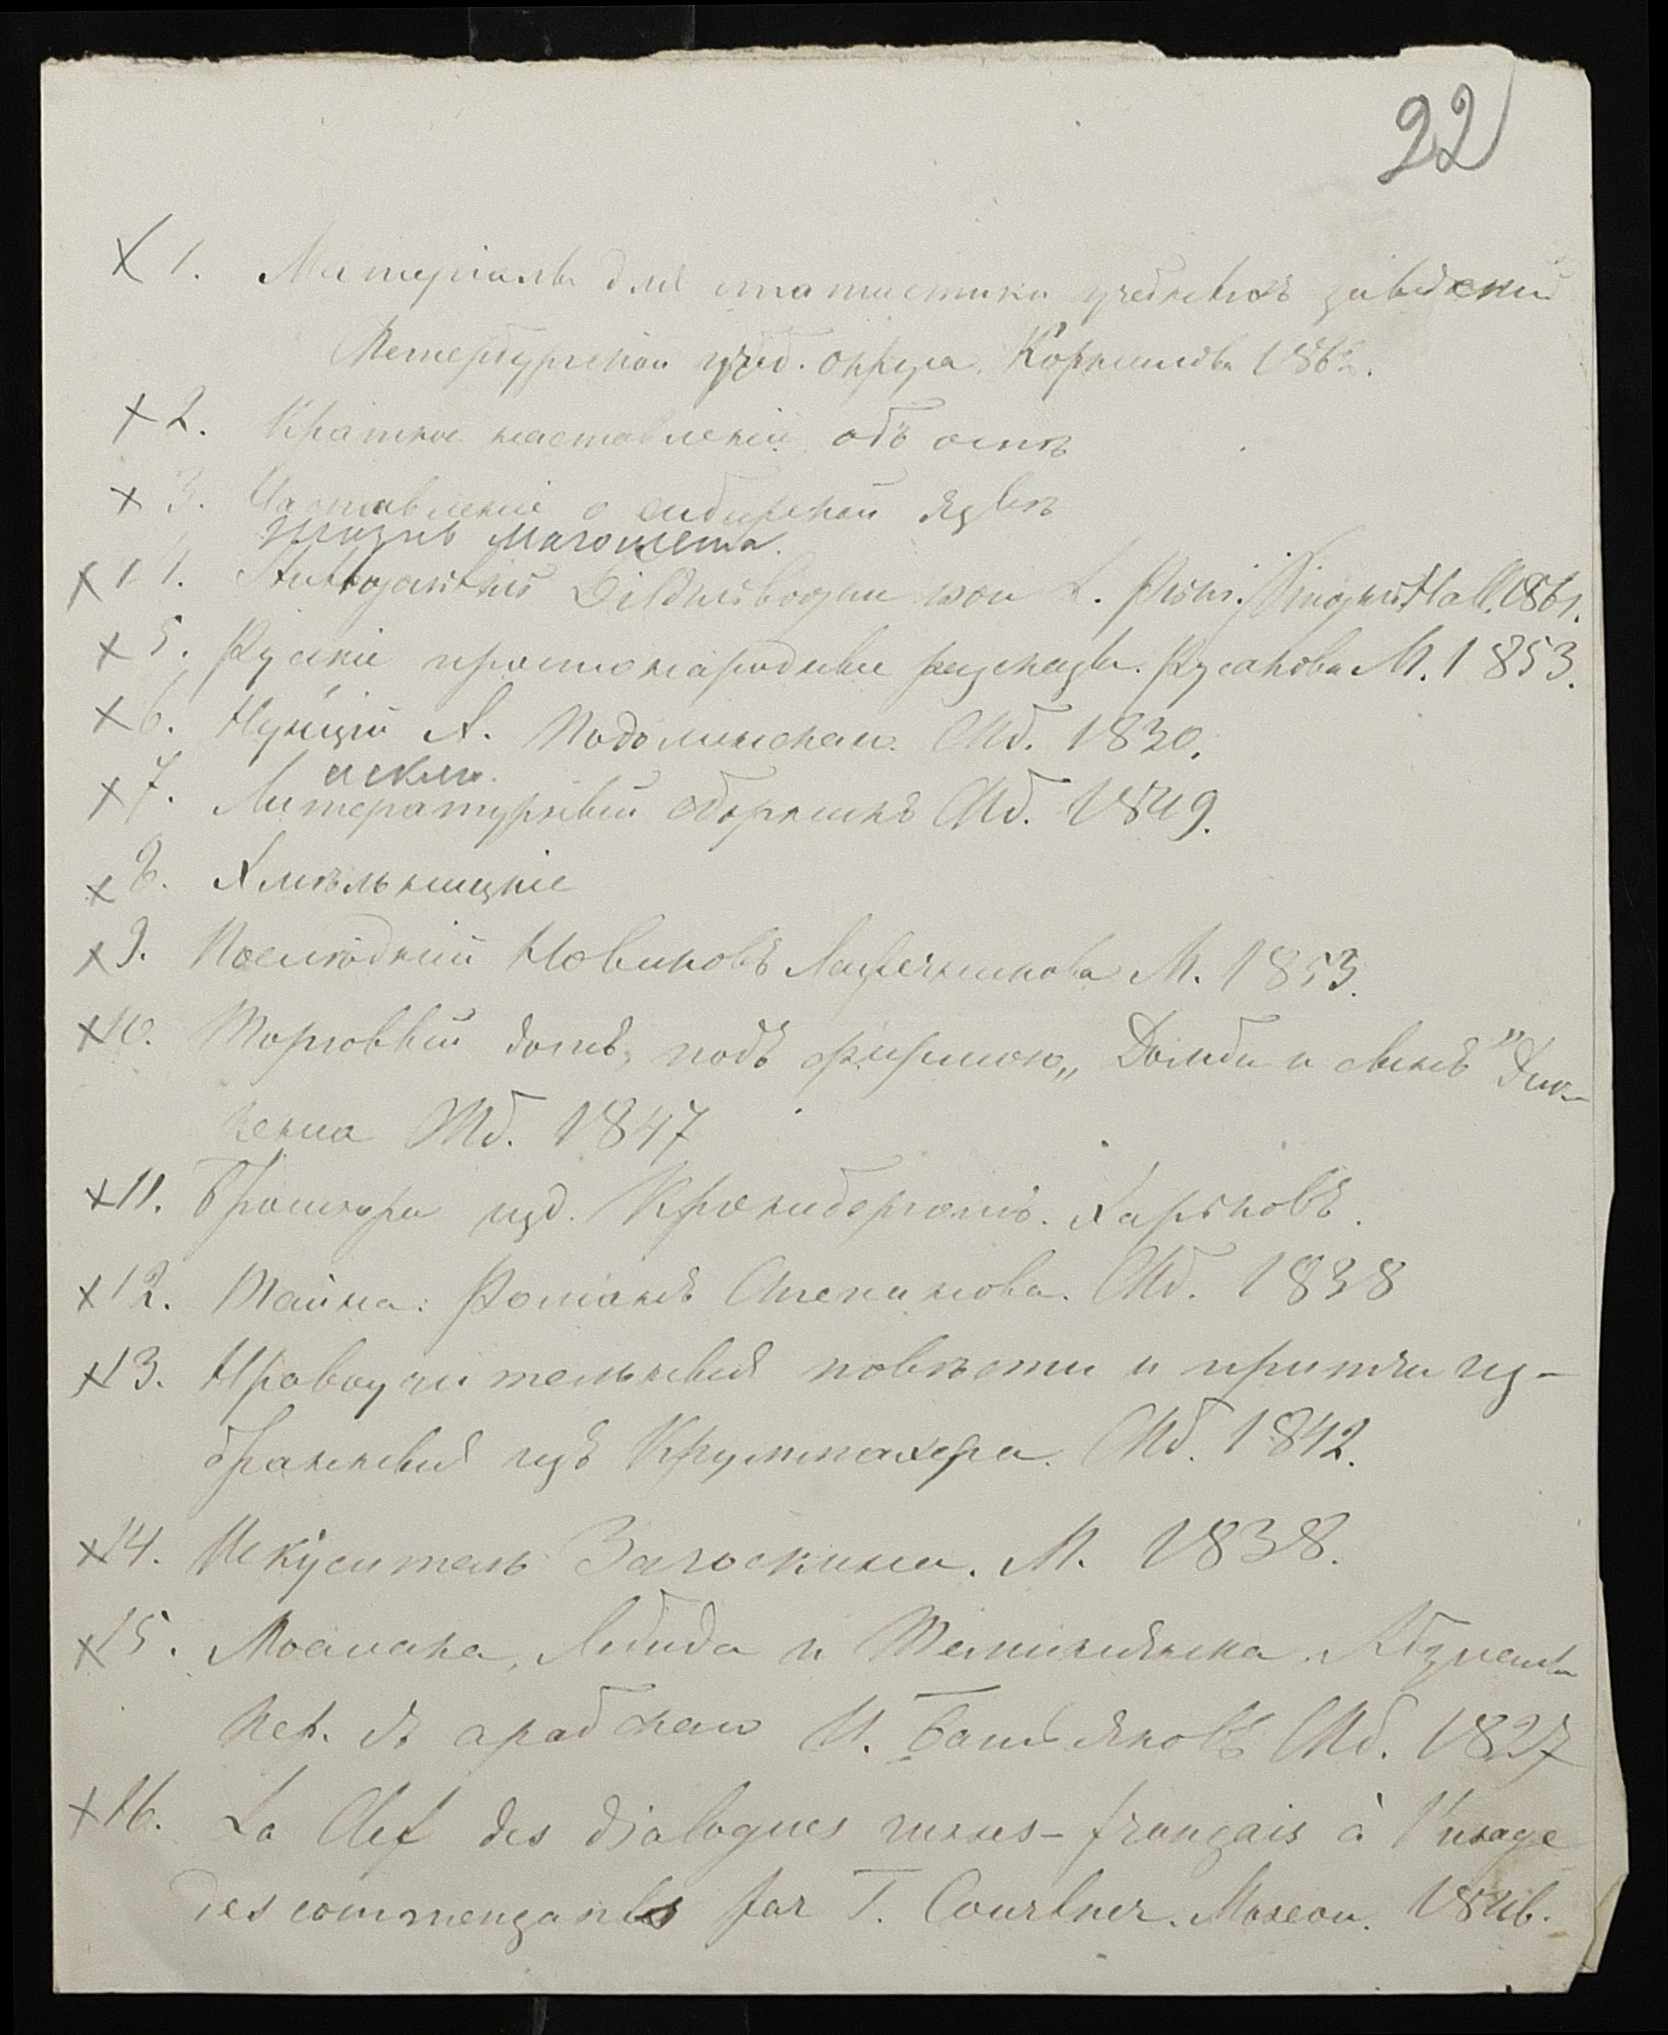 22
× 1. Матеріалы для статистики учебныхъ заведеній
Петербургскаго учеб. округа. Корнилова 1862.
× 2. Краткое наставленіе объ оспѣ
× 3. Наставленіе о сибирской язвѣ
Жизнь Магомета.
× von L. Hall. 1861.
× 5. Рускіе простонародные разсказы. Русанова М. 1853.
× 6. Нищій А. Подолинскаго. Спб. 1830.
× 7. Литературный сборникъ Спб. 1849.
× 8. Хмѣльницкіе
× 9. Послѣдній Новикъ Лажечникова М. 1853.
× 10. Торговый домъ, подъ фирмою „Домби и сынъ" Дик-
кенса Спб. 1847
× 11. Брошюры изд. Кронебергомъ. Харьковъ.
× 12. Тайна. Романъ Степанова. Спб. 1838
× 13. Нравоучительныя повѣсти и притчи из-
бранныя изъ Круммахера. Спб. 1842.
× 14. Искуситель Загоскина. М. 1838.
× 15. Моаллака, Лебида и
Пер. съ арабскаго И. Спб. 1827
× 16. La Clef des dialogues russes-français à l'usage
des commençants par T. Courtner. Moscou. 1846.